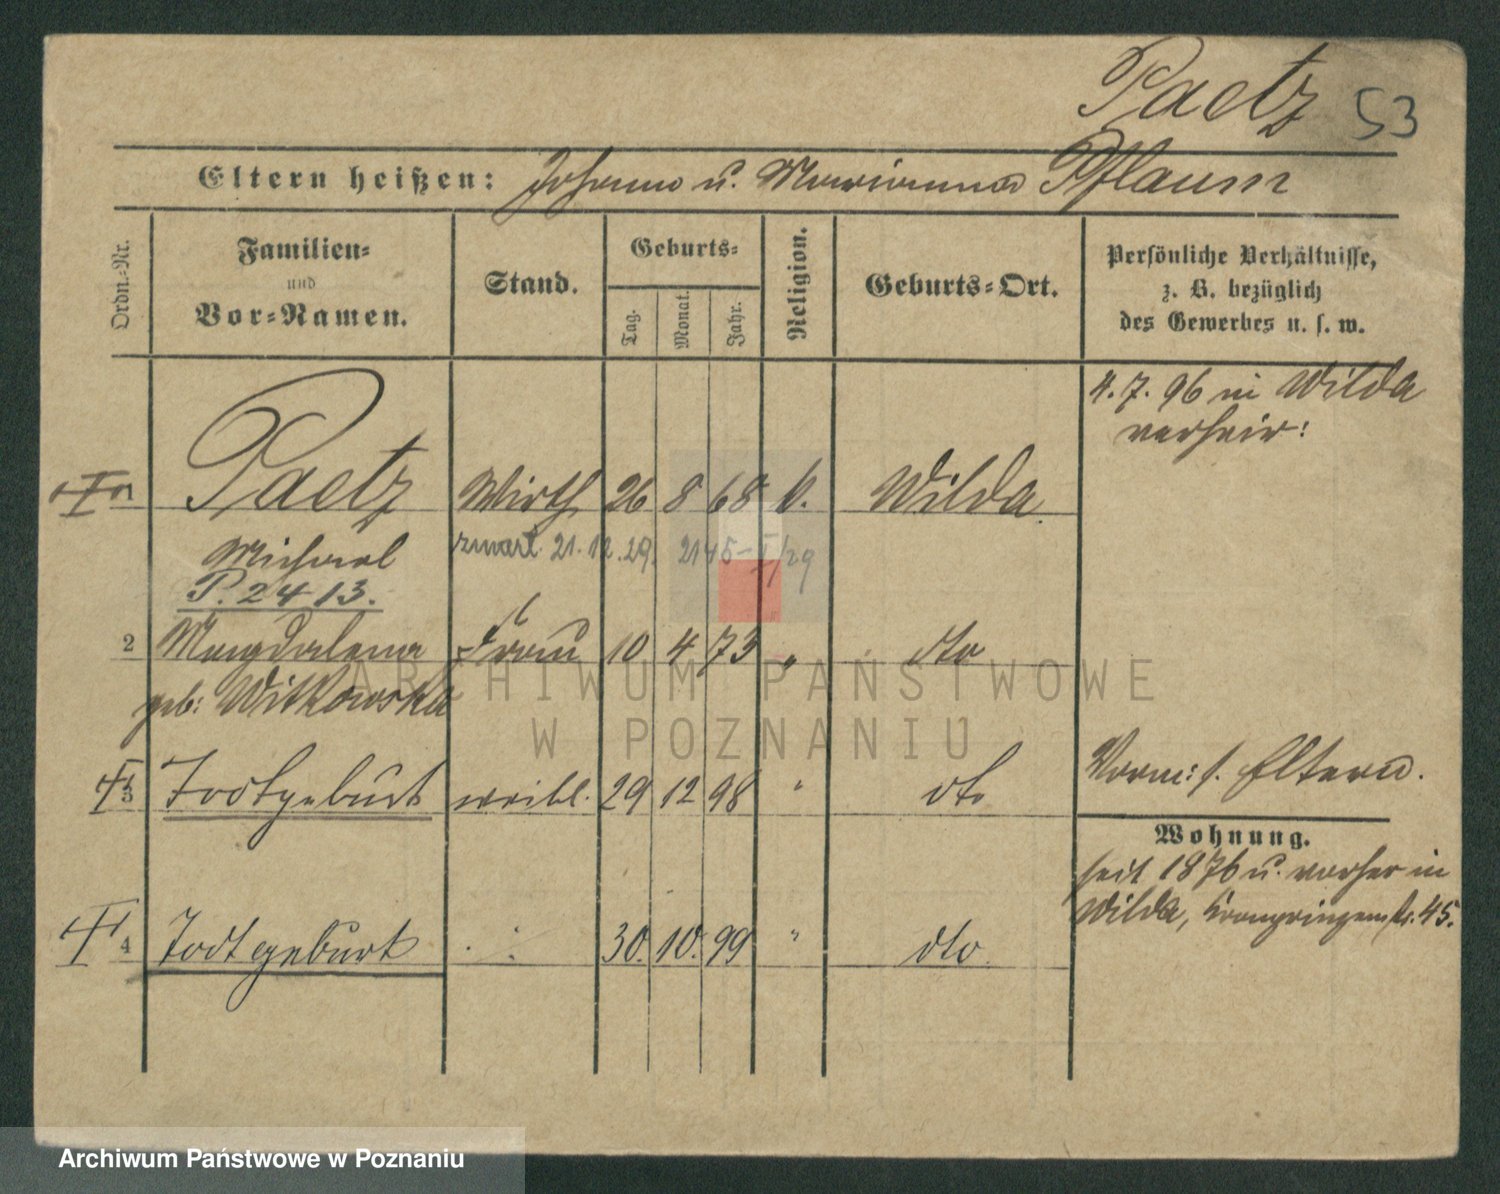 Paetz 53
Eltern heißen: Johann u. Marianna Pflaum
Ordn.-Nr.
Familien-
und
Vor-Namen.
Stand.
Geburts-
Tag.
Monat.
Jahr.
Religion.
Geburts-Ort.
Persönliche Verhältnisse,
z. B. bezüglich
des Gewerbes u. s. w.
4. 7. 96 in Wilda
verheir:
Paetz Wirth 26 8 68 k. Wilda
Michael
zmarł. 21. 12. 29. 2145-I/29
P. 2413.
2 Magdalena Frau 10 4 73 " dto
geb: Witkowska
3 Todtgeburt weibl. 29 12 98 " dto
Vorm: s. Eltern.
Wohnung.
seit 1876 u. vorher in
Wilda, Kronprinzenstr. 45.
4 Todtgeburt 30. 10. 99 " dto.
ARCHIWUM PAŃSTWOWE
W POZNANIU
Archiwum Państwowe w Poznaniu